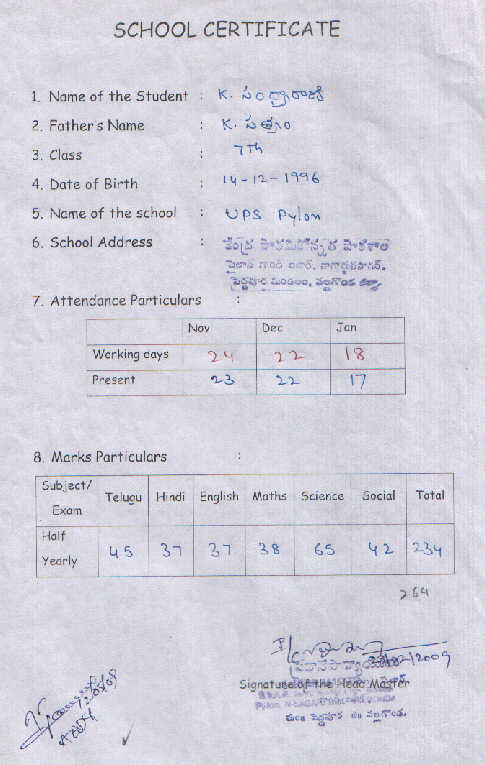 SCHOOL CERTIFICATE
1. Name of the Student : K.
2. Father's Name : K.
3. Class : 7th
4. Date of Birth : 14-12-1996
5. Name of the school : UPS Pylon
6. School Address : కేంద్ర ప్రాథమికోన్నత పాఠశాల
పైలాన్
పెద్దవూర మండలం, నల్గొండ జిల్లా.
7. Attendance Particulars :
Nov Dec Jan
Working days 24 22 18
Present 23 22 17
8. Marks Particulars :
Subject/ Exam Telugu Hindi English Maths Science Social Total
Half Yearly 45 37 37 38 65 42 234
264
Signature of the Head Master